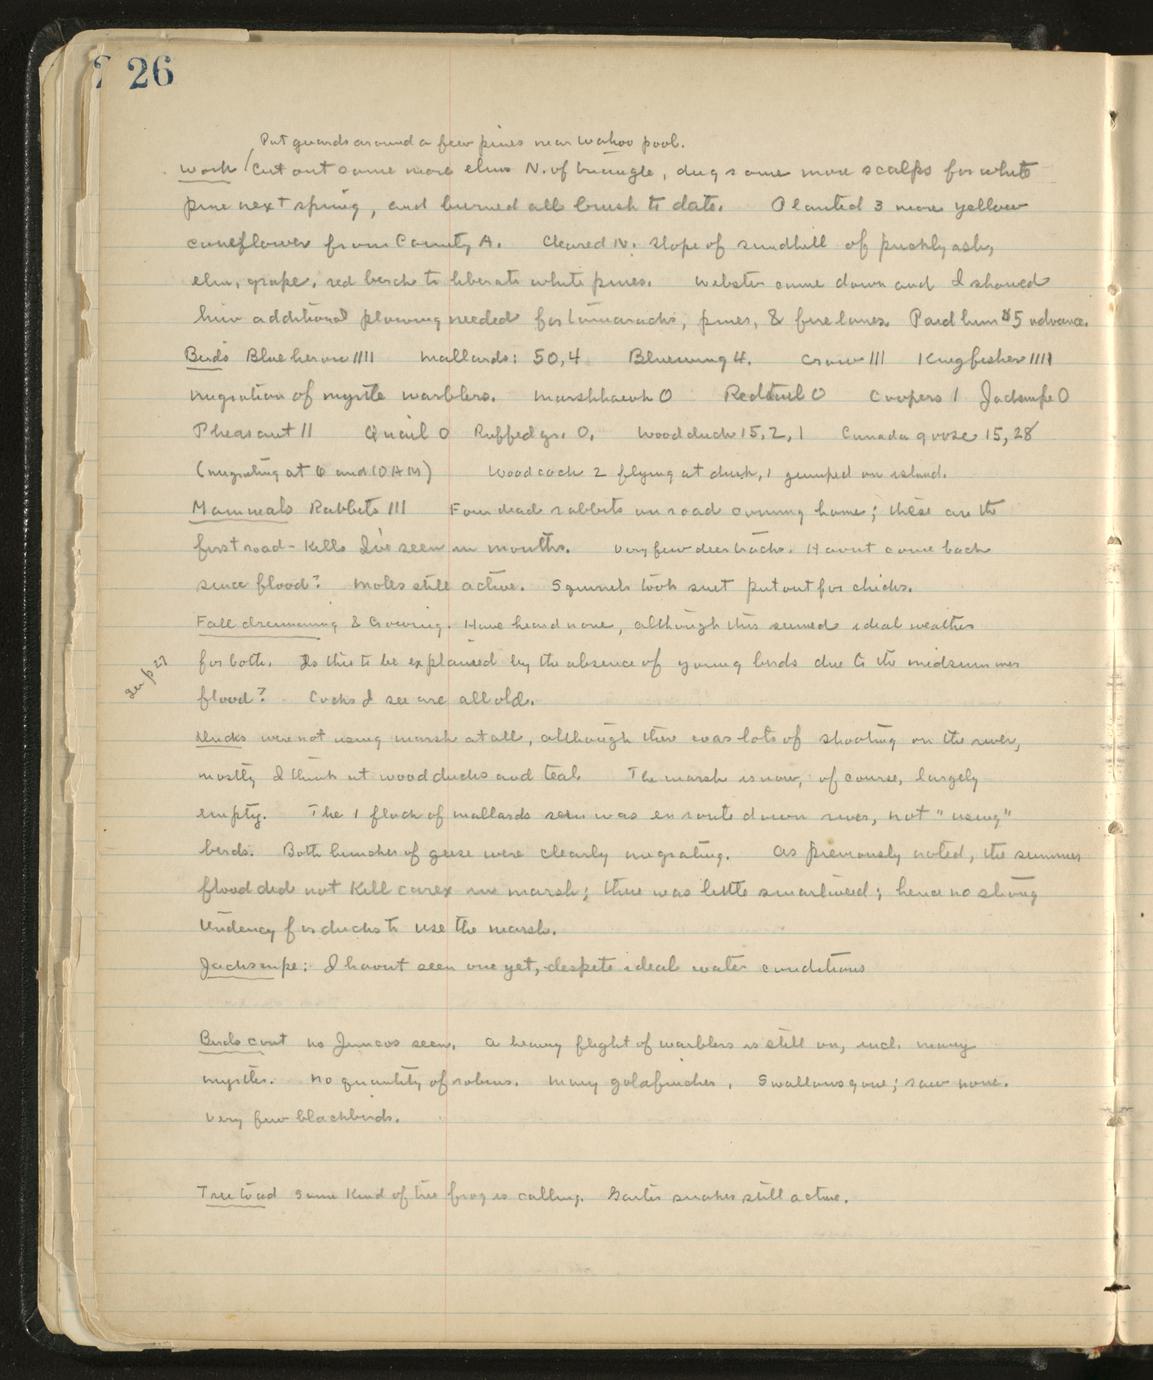 26
Put guards around a few pines near Wahoo pool.
Work / Cut out some more elms N. of triangle, dug some more scalps for white
pine next spring, and burned all brush to date. Planted 3 more yellow
coneflower from County A. Cleared N. slope of sandhill of prickly ash,
elm, grape, red birch to liberate white pines. Webster came down and I showed
him additional plowing needed for tamaracks, pines, & fire lanes. Paid him $5 advance.
Birds Blue heron IIII Mallards: 50, 4 Bluewing 4. Crow III Kingfisher IIII
migration of myrtle warblers. Marshhawk 0 Redtail 0 Coopers 1 Jacksnipe 0
Pheasant II Quail 0 Ruffed gr. 0. Woodduck 15, 2, 1 Canada goose 15, 28
(migrating at 6 and 10 AM) Woodcock 2 flying at dusk, 1 jumped on island.
Mammals Rabbits III Four dead rabbits on road coming home; these are the
first road-kills I've seen in months. Very few deer tracks. Havnt come back
since flood? Moles still active. Squirrels took suet put out for chicks.
Fall drumming & Crowing. Have heard none, although this seemed ideal weather
for both. Is this to be explained by the absence of young birds due to the midsummer
see p 27
flood? Cocks I see are all old.
Ducks were not using marsh at all, although there was lots of shooting on the river,
mostly I think at woodducks and teal. The marsh is now, of course, largely
empty. The 1 flock of mallards seen was en route down river, not "using"
birds. Both bunches of geese were clearly migrating. As previously noted, the summer
flood did not kill carex in marsh; there was little smartweed; hence no strong
tendency for ducks to use the marsh.
Jacksnipe: I havnt seen one yet, despite ideal water conditions
Birds cont no Juncos seen. A heavy flight of warblers is still on, incl. many
myrtle. No quantity of robins. Many goldfinches. Swallows gone; saw none.
Very few blackbirds.
Tree toad Some kind of tree frog is calling. Garter snakes still active.